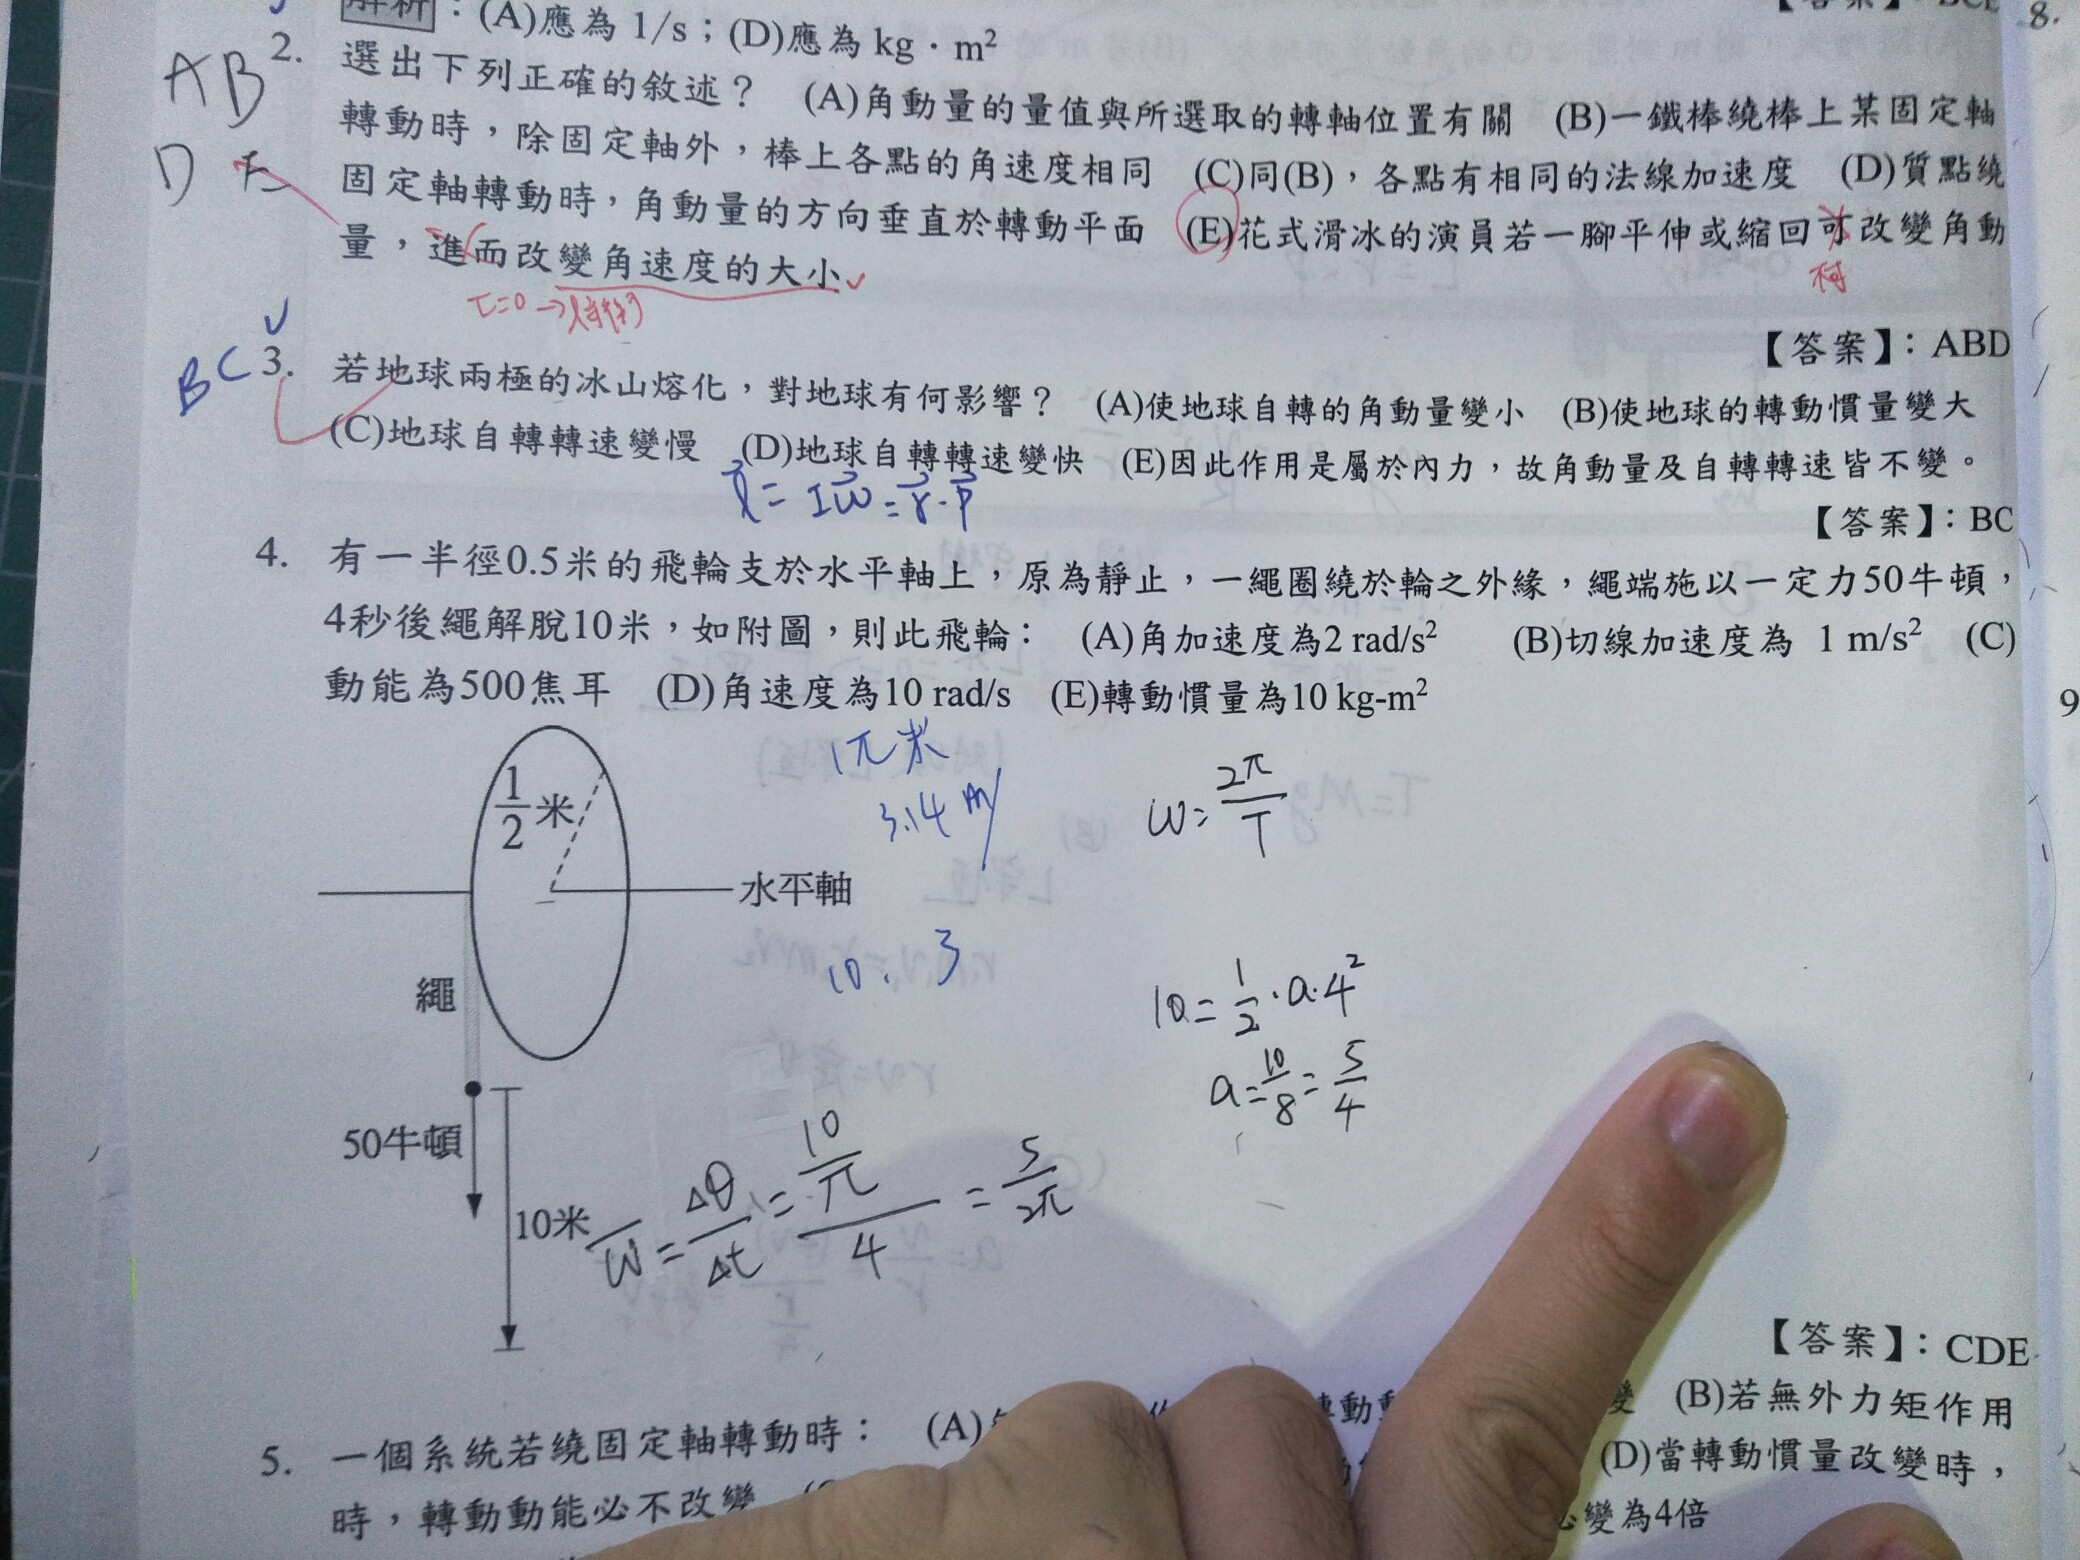 解析：(A)應為 1/s；(D)應為 kg · m²
8.
AB
2. 選出下列正確的敘述？ (A)角動量的量值與所選取的轉軸位置有關 (B)一鐵棒繞棒上某固定軸
轉動時，除固定軸外，棒上各點的角速度相同 (C)同(B)，各點有相同的法線加速度 (D)質點繞
D E
固定軸轉動時，角動量的方向垂直於轉動平面 (E)花式滑冰的演員若一腳平伸或縮回可改變角動
量，進而改變角速度的大小
τ=0→
【答案】：ABD
BC
3. 若地球兩極的冰山熔化，對地球有何影響？ (A)使地球自轉的角動量變小 (B)使地球的轉動慣量變大
(C)地球自轉轉速變慢 (D)地球自轉轉速變快 (E)因此作用是屬於內力，故角動量及自轉轉速皆不變。
l = Iω = r · p
【答案】：BC
4. 有一半徑0.5米的飛輪支於水平軸上，原為靜止，一繩圈繞於輪之外緣，繩端施以一定力50牛頓，
4秒後繩解脫10米，如附圖，則此飛輪： (A)角加速度為2 rad/s² (B)切線加速度為 1 m/s² (C)
動能為500焦耳 (D)角速度為10 rad/s (E)轉動慣量為10 kg-m²
9
1π米
3.14 m
ω = 2π/T
1/2 米
水平軸
10. 3
繩
10 = 1/2 · a · 4²
a = 10/8 = 5/4
50牛頓
10米
ω = Δθ/Δt = (10/π)/4 = 5/2π
【答案】：CDE
5. 一個系統若繞固定軸轉動時： (A) 轉動 (B)若無外力矩作用
時，轉動動能必不改變 (D)當轉動慣量改變時，
變為4倍